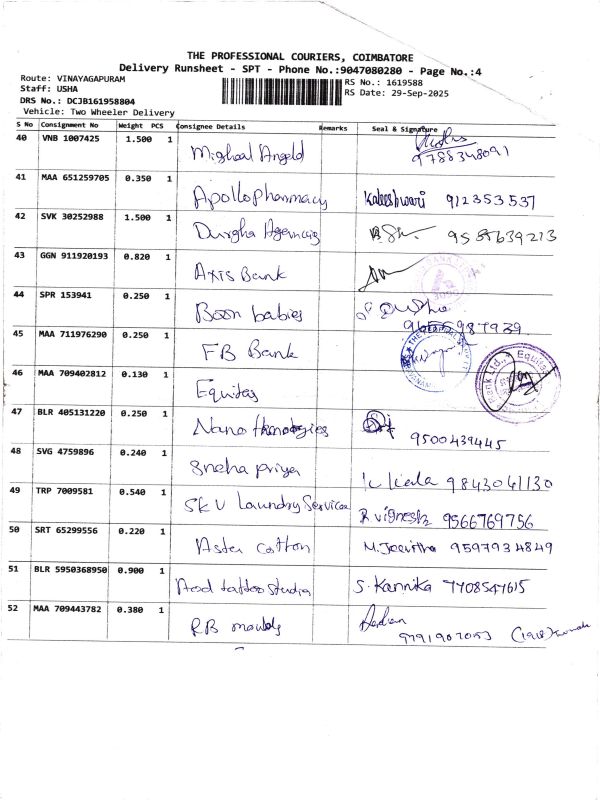 THE PROFESSIONAL COURIERS, COIMBATORE
Delivery Runsheet - SPT - Phone No.:9047080280 - Page No.:4
Route: VINAYAGAPURAM
RS No.: 1619588
Staff: USHA
RS Date: 29-Sep-2025
DRS No.: DCJB161958804
Vehicle: Two Wheeler Delivery
S No Consignment No Weight PCS Consignee Details Remarks Seal & Signature
40 VNB 1007425 1.500 1 Migheal Angeld 9788348091
41 MAA 651259705 0.350 1 Apollo pharmacy Kaleeshwari 912353537
42 SVK 30252988 1.500 1 Durgha Agencies 9587639213
43 GGN 911920193 0.820 1 Axis Bank
44 SPR 153941 0.250 1 Boon babies Usha
9655987939
45 MAA 711976290 0.250 1 FB Bank
46 MAA 709402812 0.130 1 Equitas
47 BLR 405131220 0.250 1 Nano 9500439445
48 SVG 4759896 0.240 1 Sneha priya 9843041130
49 TRP 7009581 0.540 1 SKV Laundry Services R Vignesh 9566769756
50 SRT 65299556 0.220 1 Aster cotton M. Jeevitha 9597934849
51 BLR 5950368950 0.900 1 Aod tattoo studio S. Kannika 7708547615
52 MAA 709443782 0.380 1 RB moulds